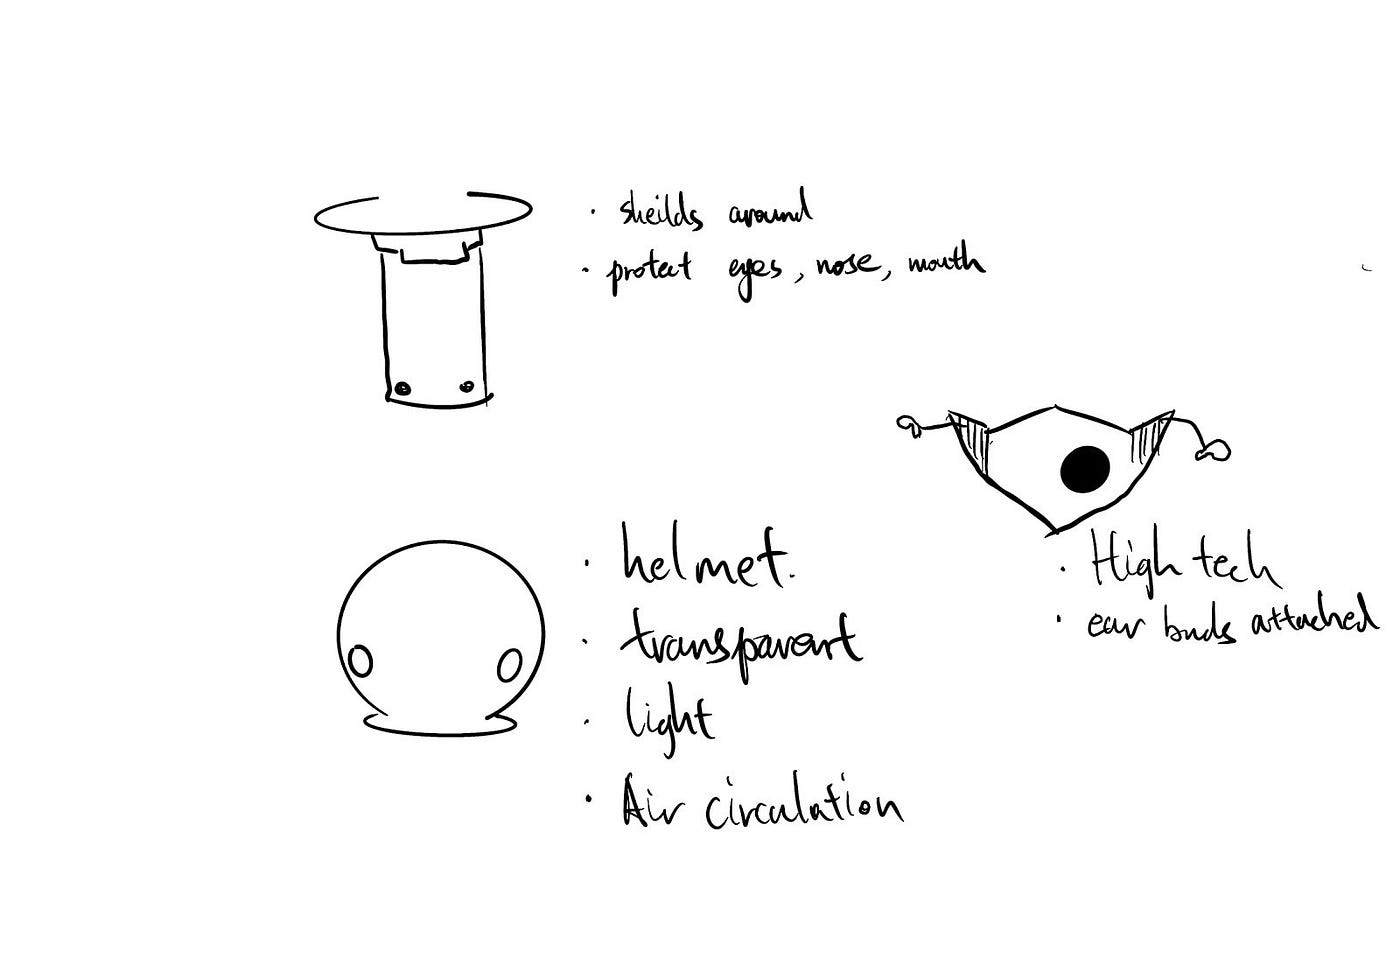 · sheilds around
· protect eyes, nose, mouth
· helmet.
· transparent
· light
· Air circulation
· High tech
· ear buds attached